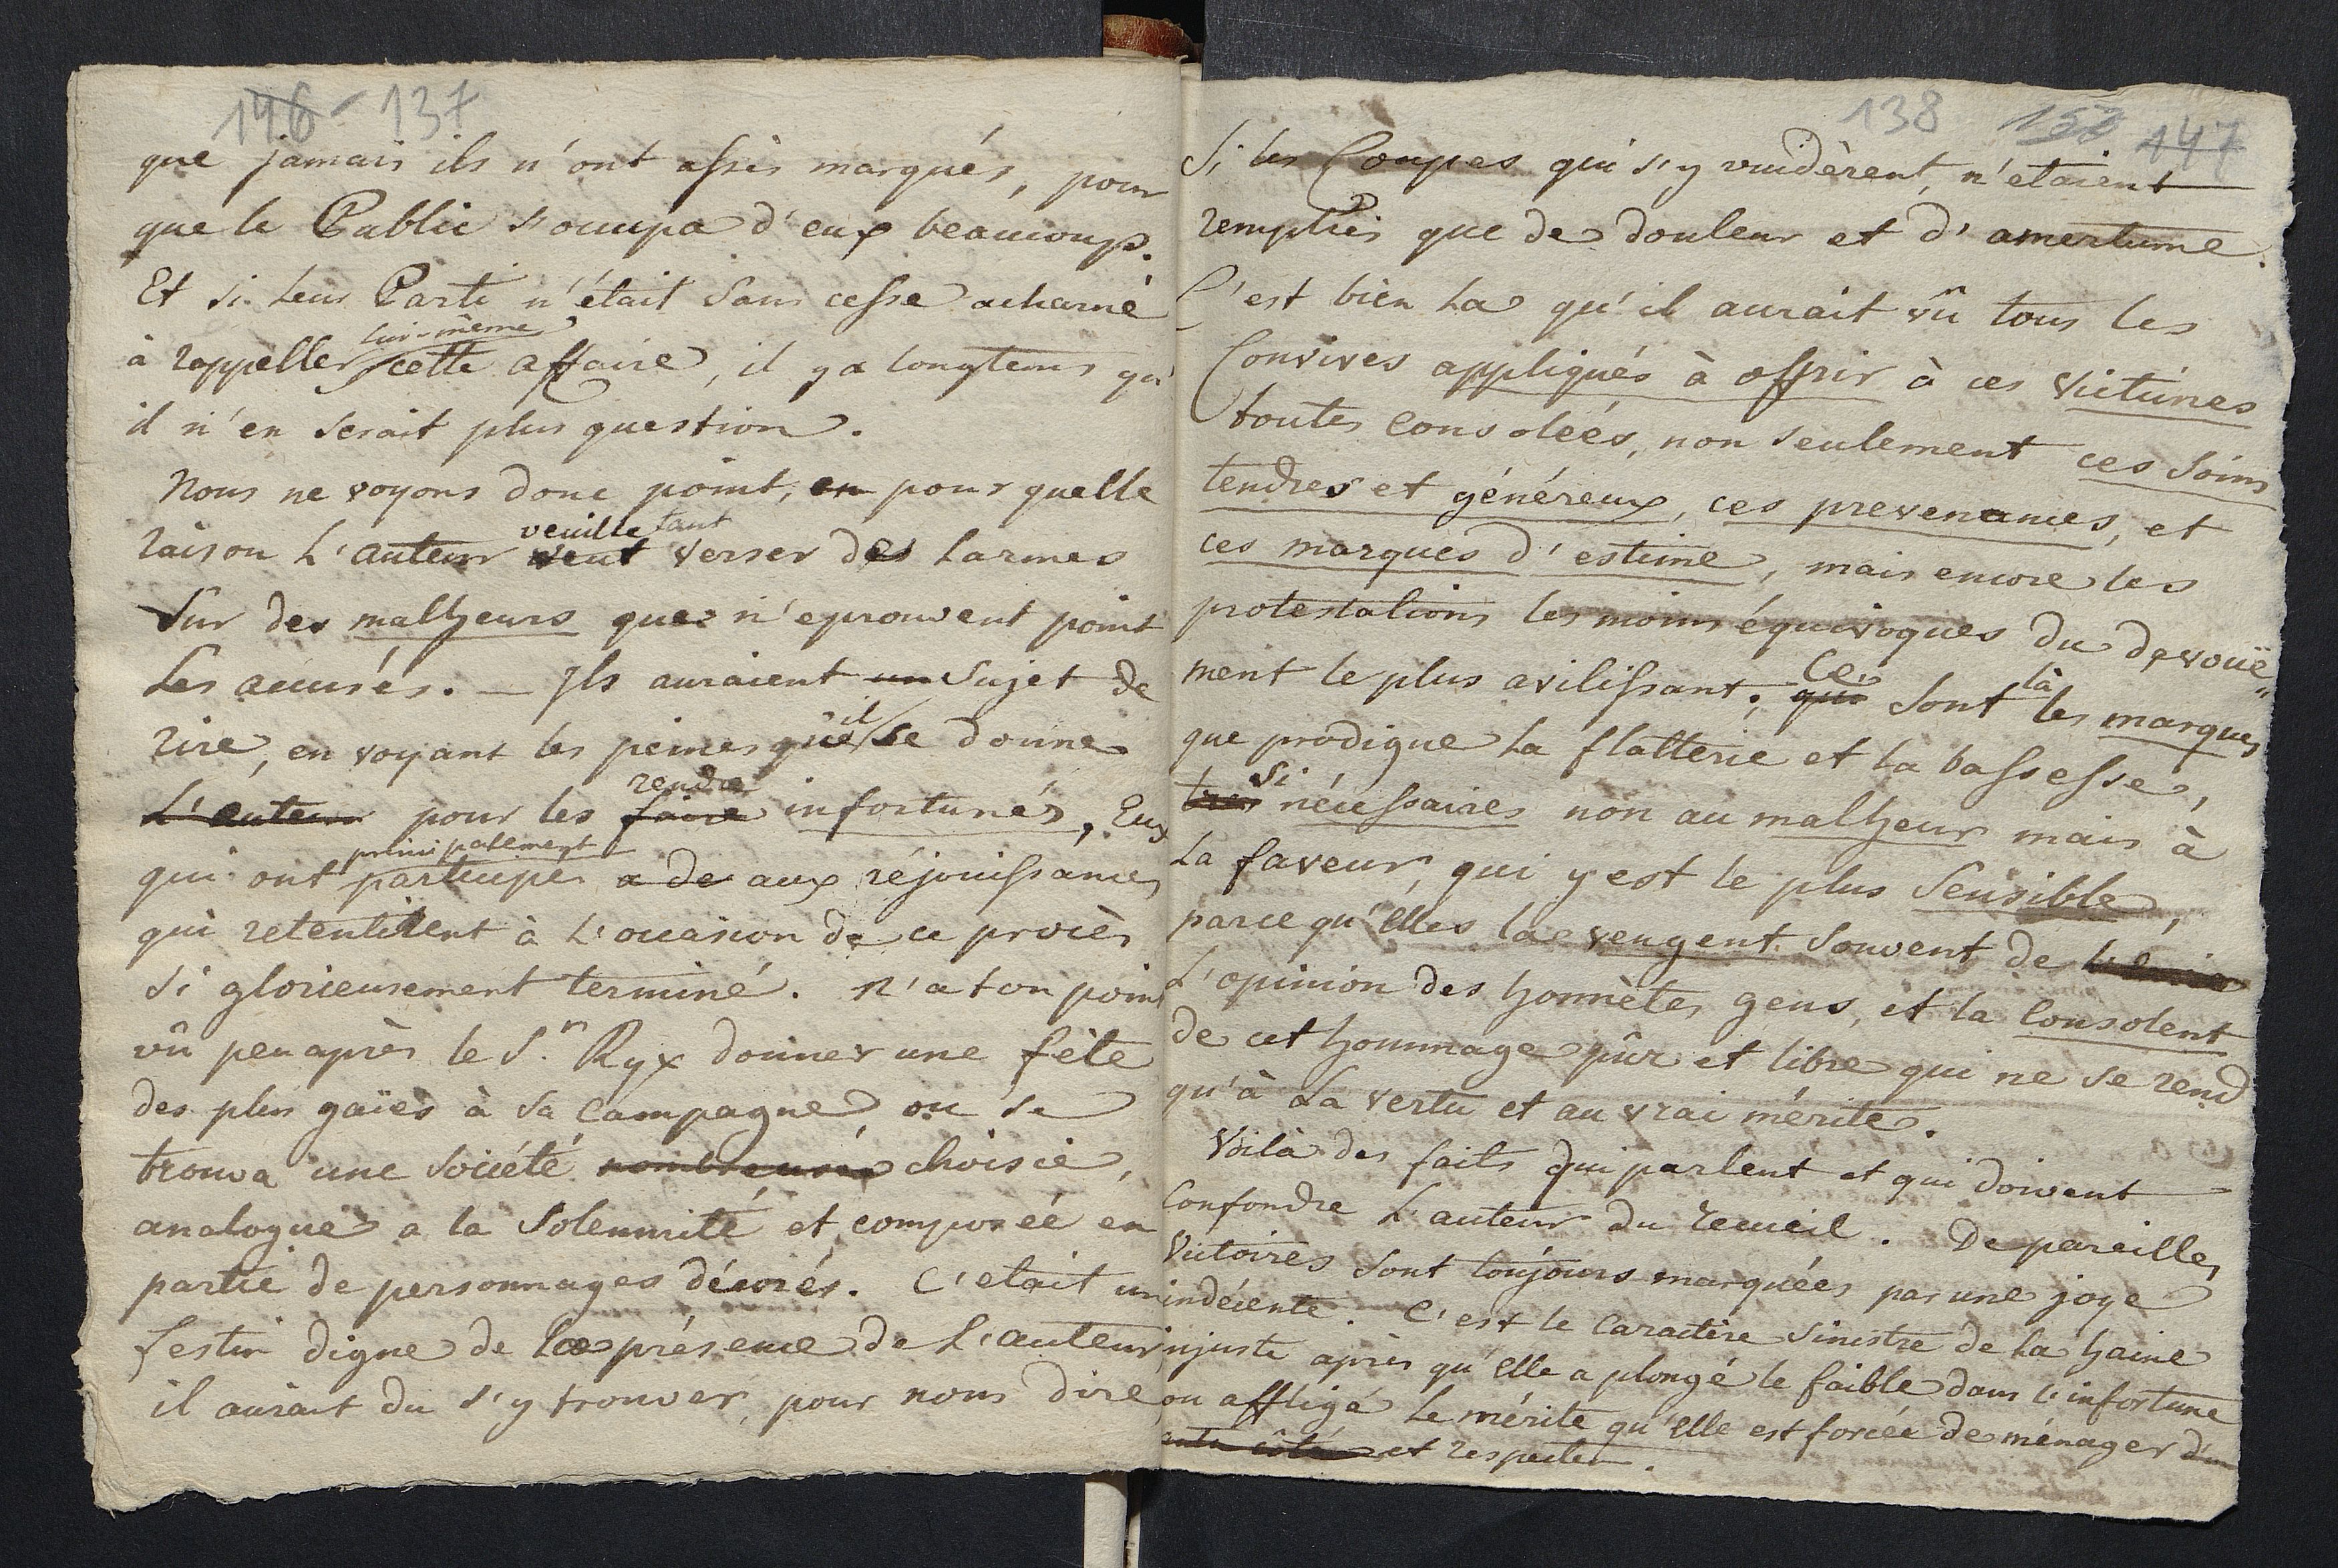 146 - 137
que jamais ils n'ont assés marqués, pour
que le Public s'occupa d'eux beaucoup.
Et si leur Parti n'était sans cesse acharné
lui-même
à rappeller cette affaire, il y a longtems qu'
il n'en serait plus question.
Nous ne voyons donc point, en pour quelle
veuille tant
raison L'auteur veut verser des larmes
Sur des malheurs que n'eprouvent point
Les accusés. _ Ils auraient un sujet de
il
rire, en voyant les peines que se donne
rendre
L'auteur pour les faire infortunés, Eux
principalement
qui ont participé a de aux réjouissances
qui retentirent à L'occasion de ce procès
si glorieusement terminé. N'a t on point
vû peu après le S.r Ryx donner une fête
des plus gaïes à sa Campagne, ou se
trouva une société nombreuse choisie,
analogue a la Solennité et composéé en
partie de personnages décorés. C'etait un
festin digne de la présence de L'auteur
il aurait du s'y trouver, pour nous dire
138 152 147
Si les Coupes qui s'y vuidèrent, n'etaient
remplies que de douleur et d'amertume.
C'est bien La qu'il aurait vû tous les
Convives appliqués à offrir à ces Victimes
toutes consoléés, non seulement ces soins
tendres et généreux, ces prevenances, et
ces marques d'estime, mais encore les
protestations les moins équivoques du dévouë
Ce là
ment le plus avilissant; qui sont les marques
que prodigue La flatterie et la bassesse,
si
tres nécessaires non au malheur mais à
La faveur, qui y est le plus Sensible,
parce qu'Elles la vengent souvent de
L'opinion des honnètes gens, et la Consolent
de cet hommage pûr et libre qui ne se rend
qu'à La vertu et au vrai mérite.
Voilà des faits qui parlent et qui doivent
Confondre L'auteur du recueil. De pareilles
Victoires sont toujours marquées par une joye
indécente. C'est le Caractère sinistre de La haine
injuste après qu'Elle a plongé le faible dans l'infortune
ou affligé Le mérite qu'Elle est forcée de ménager
et respecter.